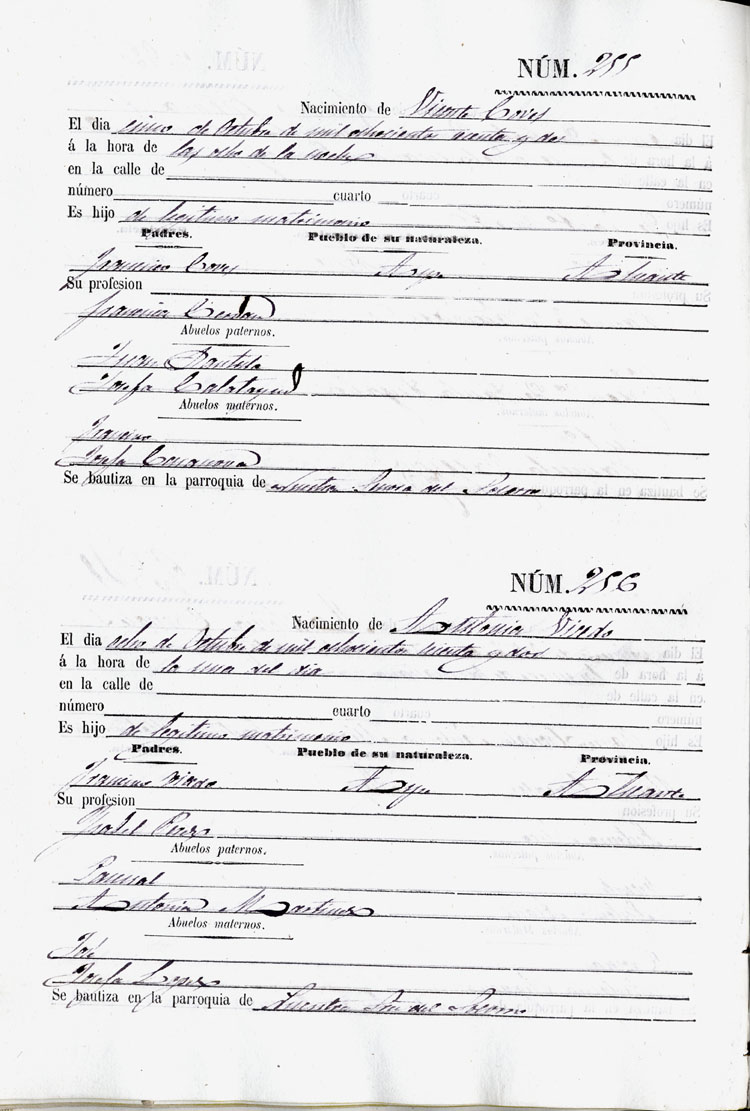 NÚM. 255
Nacimiento de Vicente Coves
El dia cinco de Octubre de mil ochocientos sesenta y dos
á la hora de las ocho de la noche
en la calle de
número cuarto
Es hijo de legitimo matrimonio
Padres. Pueblo de su naturaleza. Provincia.
Francisco Coves Aspe Alicante
Su profesion
Francisca Cerdan
Abuelos paternos.
Juan Bautista
Josefa Calatayud
Abuelos maternos.
Francisco
Josefa
Se bautiza en la parroquia de Nuestra Señora del Socorro
NÚM. 256
Nacimiento de Antonia Vicedo
El dia ocho de Octubre de mil ochocientos sesenta y dos
á la hora de la una del dia
en la calle de
número cuarto
Es hijo de legitimo matrimonio
Padres. Pueblo de su naturaleza. Provincia.
Francisco Vicedo Aspe Alicante
Su profesion
Ysabel Perez
Abuelos paternos.
Pascual
Antonia Martinez
Abuelos maternos.
José
Josefa Lopez
Se bautiza en la parroquia de Nuestra Sra del Socorro